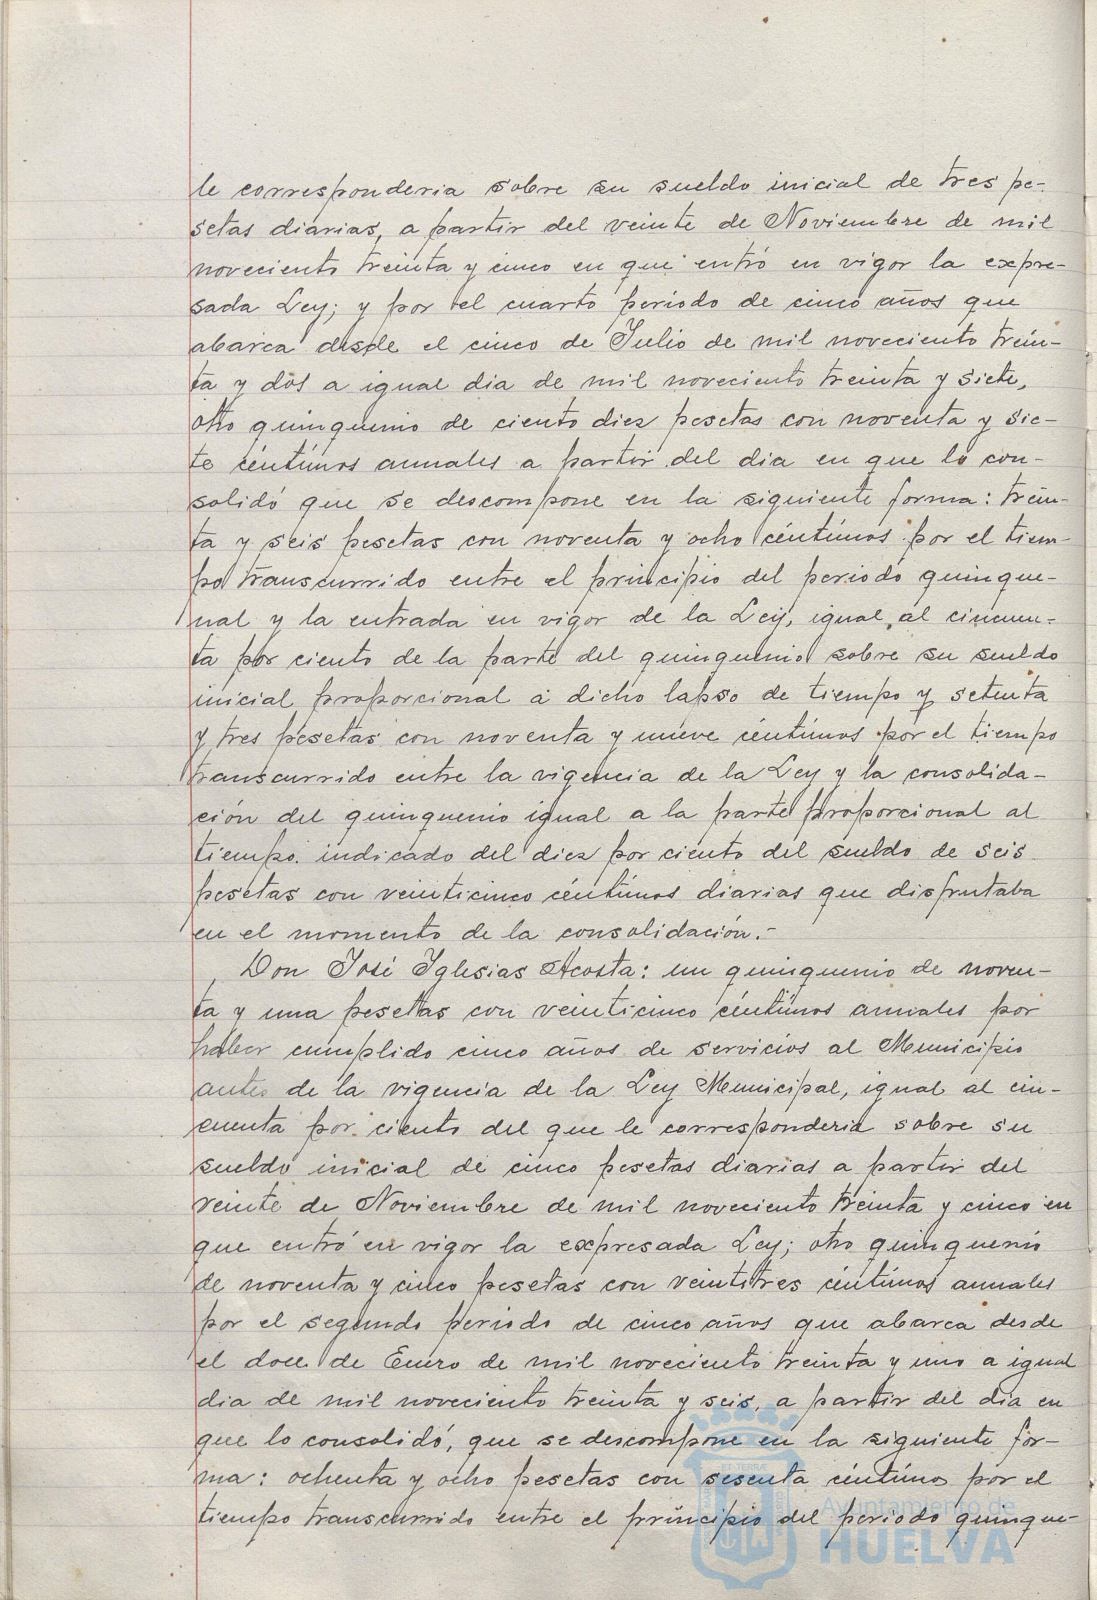 le corresponderia sobre su sueldo inicial de tres pe-
setas diarias, a partir del veinte de Noviembre de mil
noveciento treinta y cinco en que entró en vigor la expre-
sada Ley; y por el cuarto periodo de cinco años que
abarca desde el cinco de Julio de mil noveciento trein-
ta y dos a igual dia de mil noveciento treinta y siete,
otro quinquenio de ciento diez pesetas con noventa y sie-
te céntimos anuales a partir del dia en que lo con-
solidó que se descompone en la siguiente forma: trein-
ta y seis pesetas con noventa y ocho céntimos por el tiem-
po transcurrido entre el principio del periodo quinque-
nal y la entrada en vigor de la Ley, igual al cincuen-
ta por ciento de la parte del quinquenio sobre su sueldo
inicial proporcional a dicho lapso de tiempo y setenta
y tres pesetas con noventa y nueve céntimos por el tiempo
transcurrido entre la vigencia de la Ley y la consolida-
ción del quinquenio igual a la parte proporcional al
tiempo indicado del diez por ciento del sueldo de seis
pesetas con veinticinco céntimos diarias que disfrutaba
en el momento de la consolidación.-
Don José Iglesias Acosta: un quinquenio de noven-
ta y una pesetas con veinticinco céntimos anuales por
haber cumplido cinco años de servicios al Municipio
antes de la vigencia de la Ley Municipal, igual al cin-
cuenta por ciento del que le corresponderia sobre su
sueldo inicial de cinco pesetas diarias a partir del
veinte de Noviembre de mil noveciento treinta y cinco en
que entró en vigor la expresada Ley; otro quinquenio
de noventa y cinco pesetas con veintitres céntimos anuales
por el segundo periodo de cinco años que abarca desde
el doce de Enero de mil noveciento treinta y uno a igual
dia de mil noveciento treinta y seis, a partir del dia en
que lo consolidó, que se descompone en la siguiente for-
ma: ochenta y ocho pesetas con sesenta céntimos por el
tiempo transcurrido entre el principio del periodo quinque-
Ayuntamiento de
HUELVA